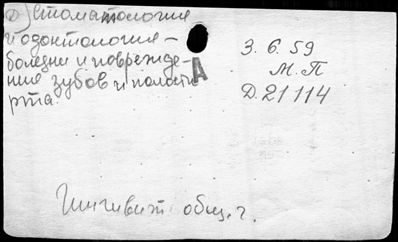 Ф) Стоматология
и одонтология –
болезни и поврежде-
ния зубов и полости
рта.
А
3. 6. 59
М. П
Д. 21 114
Гингивит общ. г.